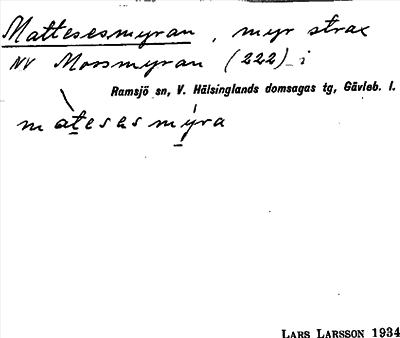 Mattesesmyran, myr strax
NV Mossmyran (222) i
Ramsjö sn, V. Hälsinglands domsagas tg, Gävleb. l.
màteses mýra
LARS LARSSON 1934